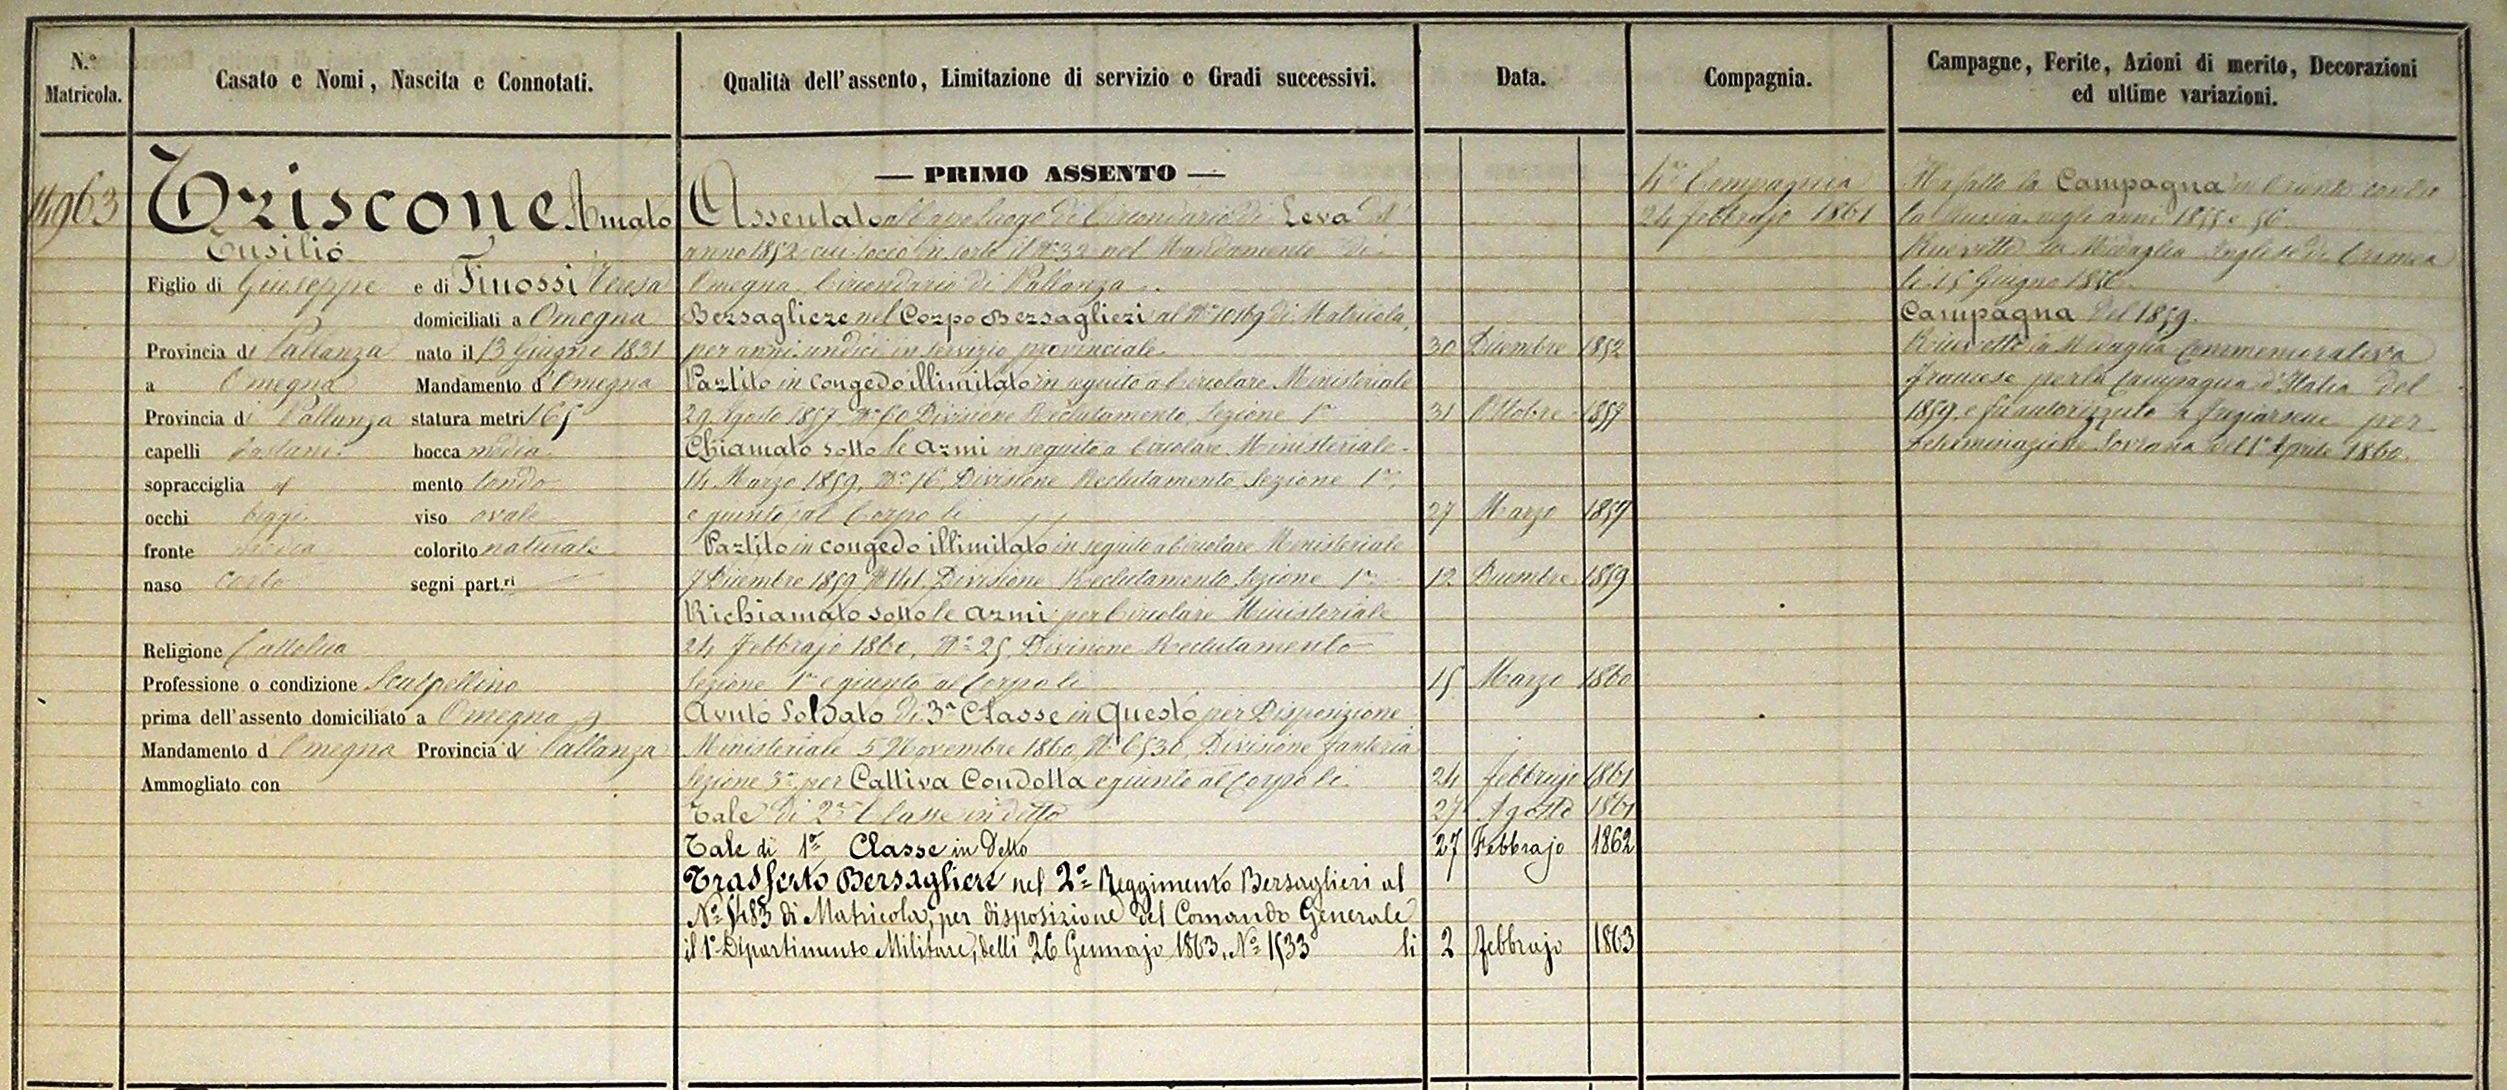 N.º Matricola.
Casato e Nomi, Nascita e Connotati.
Qualità dell'assento, Limitazione di servizio e Gradi successivi.
Data.
Compagnia.
Campagne, Ferite, Azioni di merito, Decorazioni
ed ultime variazioni.
14963
Triscone Amato
Figlio di Giuseppe e di Finossi Teresa
domiciliati a Omegna
Provincia di Pallanza nato il 13 Giugno 1831
a Omegna Mandamento d'Omegna
Provincia di Pallanza statura metri 1 65
capelli castani bocca media
sopracciglia id mento tondo
occhi bigi viso ovale
fronte media colorito naturale
naso corto segni part.ri
Religione Cattolica
Professione o condizione Scalpellino
prima dell'assento domiciliato a Omegna
Mandamento d Omegna Provincia di Pallanza
Ammogliato con
— PRIMO ASSENTO —
Assentato al capoluogo di Circondario di Leva dell'
anno 1852 cui toccò in sorte il Nº 32 nel Mandamento di
Omegna Circondario di Pallanza
Bersagliere nel Corpo Bersaglieri al Nº 10169 di Matricola,
per anni undici in servizio provinciale. 30 Dicembre 1852
Partito in congedo illimitato in seguito a Circolare Ministeriale
29 Agosto 1857, Nº 60 Divisione Reclutamento, Sezione 1ª 31 Ottobre 1857
Chiamato sotto le armi in seguito a Circolare Ministeriale
14 Marzo 1859, Nº 16, Divisione Reclutamento, Sezione 1ª,
e giunto al Corpo li 27 Marzo
Partito in congedo illimitato in seguito a Circolare Ministeriale
7 Dicembre 1859 Divisione Reclutamento, Sezione 1ª 12 Dicembre 1859
Richiamato sotto le armi per Circolare Ministeriale
24 Febbrajo 1860, Nº 25, Divisione Reclutamento
Sezione 1ª e giunto al Corpo li 15 Marzo 1860
Avuto Soldato di 3ª Classe in Questo per Disposizione
Ministeriale 5 Novembre 1860, Nº 6530, Divisione Fanteria
Sezione 3ª, per Cattiva Condotta e giunto al Corpo li 24 Febbrajo 1861
Tale di 2ª Classe in detto 27 Agosto 1861
Tale di 1ª Classe in detto 27 Febbrajo 1862
Trasferto Bersagliere nel 2º Reggimento Bersaglieri al
Nº 5483 di Matricola, per disposizione del Comando Generale
il 1º Dipartimento Militare, delli 26 Gennajo 1863, Nº 1533 li 2 Febbrajo 1863
4ª Compagnia
24 Febbrajo 1861
Ha fatto la Campagna in Oriente contro
la Russia negli anni 1855 e 56.
Ricevette la Medaglia Inglese di Crimea
li 15 Giugno 1856.
Campagna del 1859.
Ricevette la Medaglia Commemorativa
Francese per la Campagna d'Italia del
1859, e fu autorizzato a fregiarsene per
determinazione Sovrana del 1º Aprile 1860.